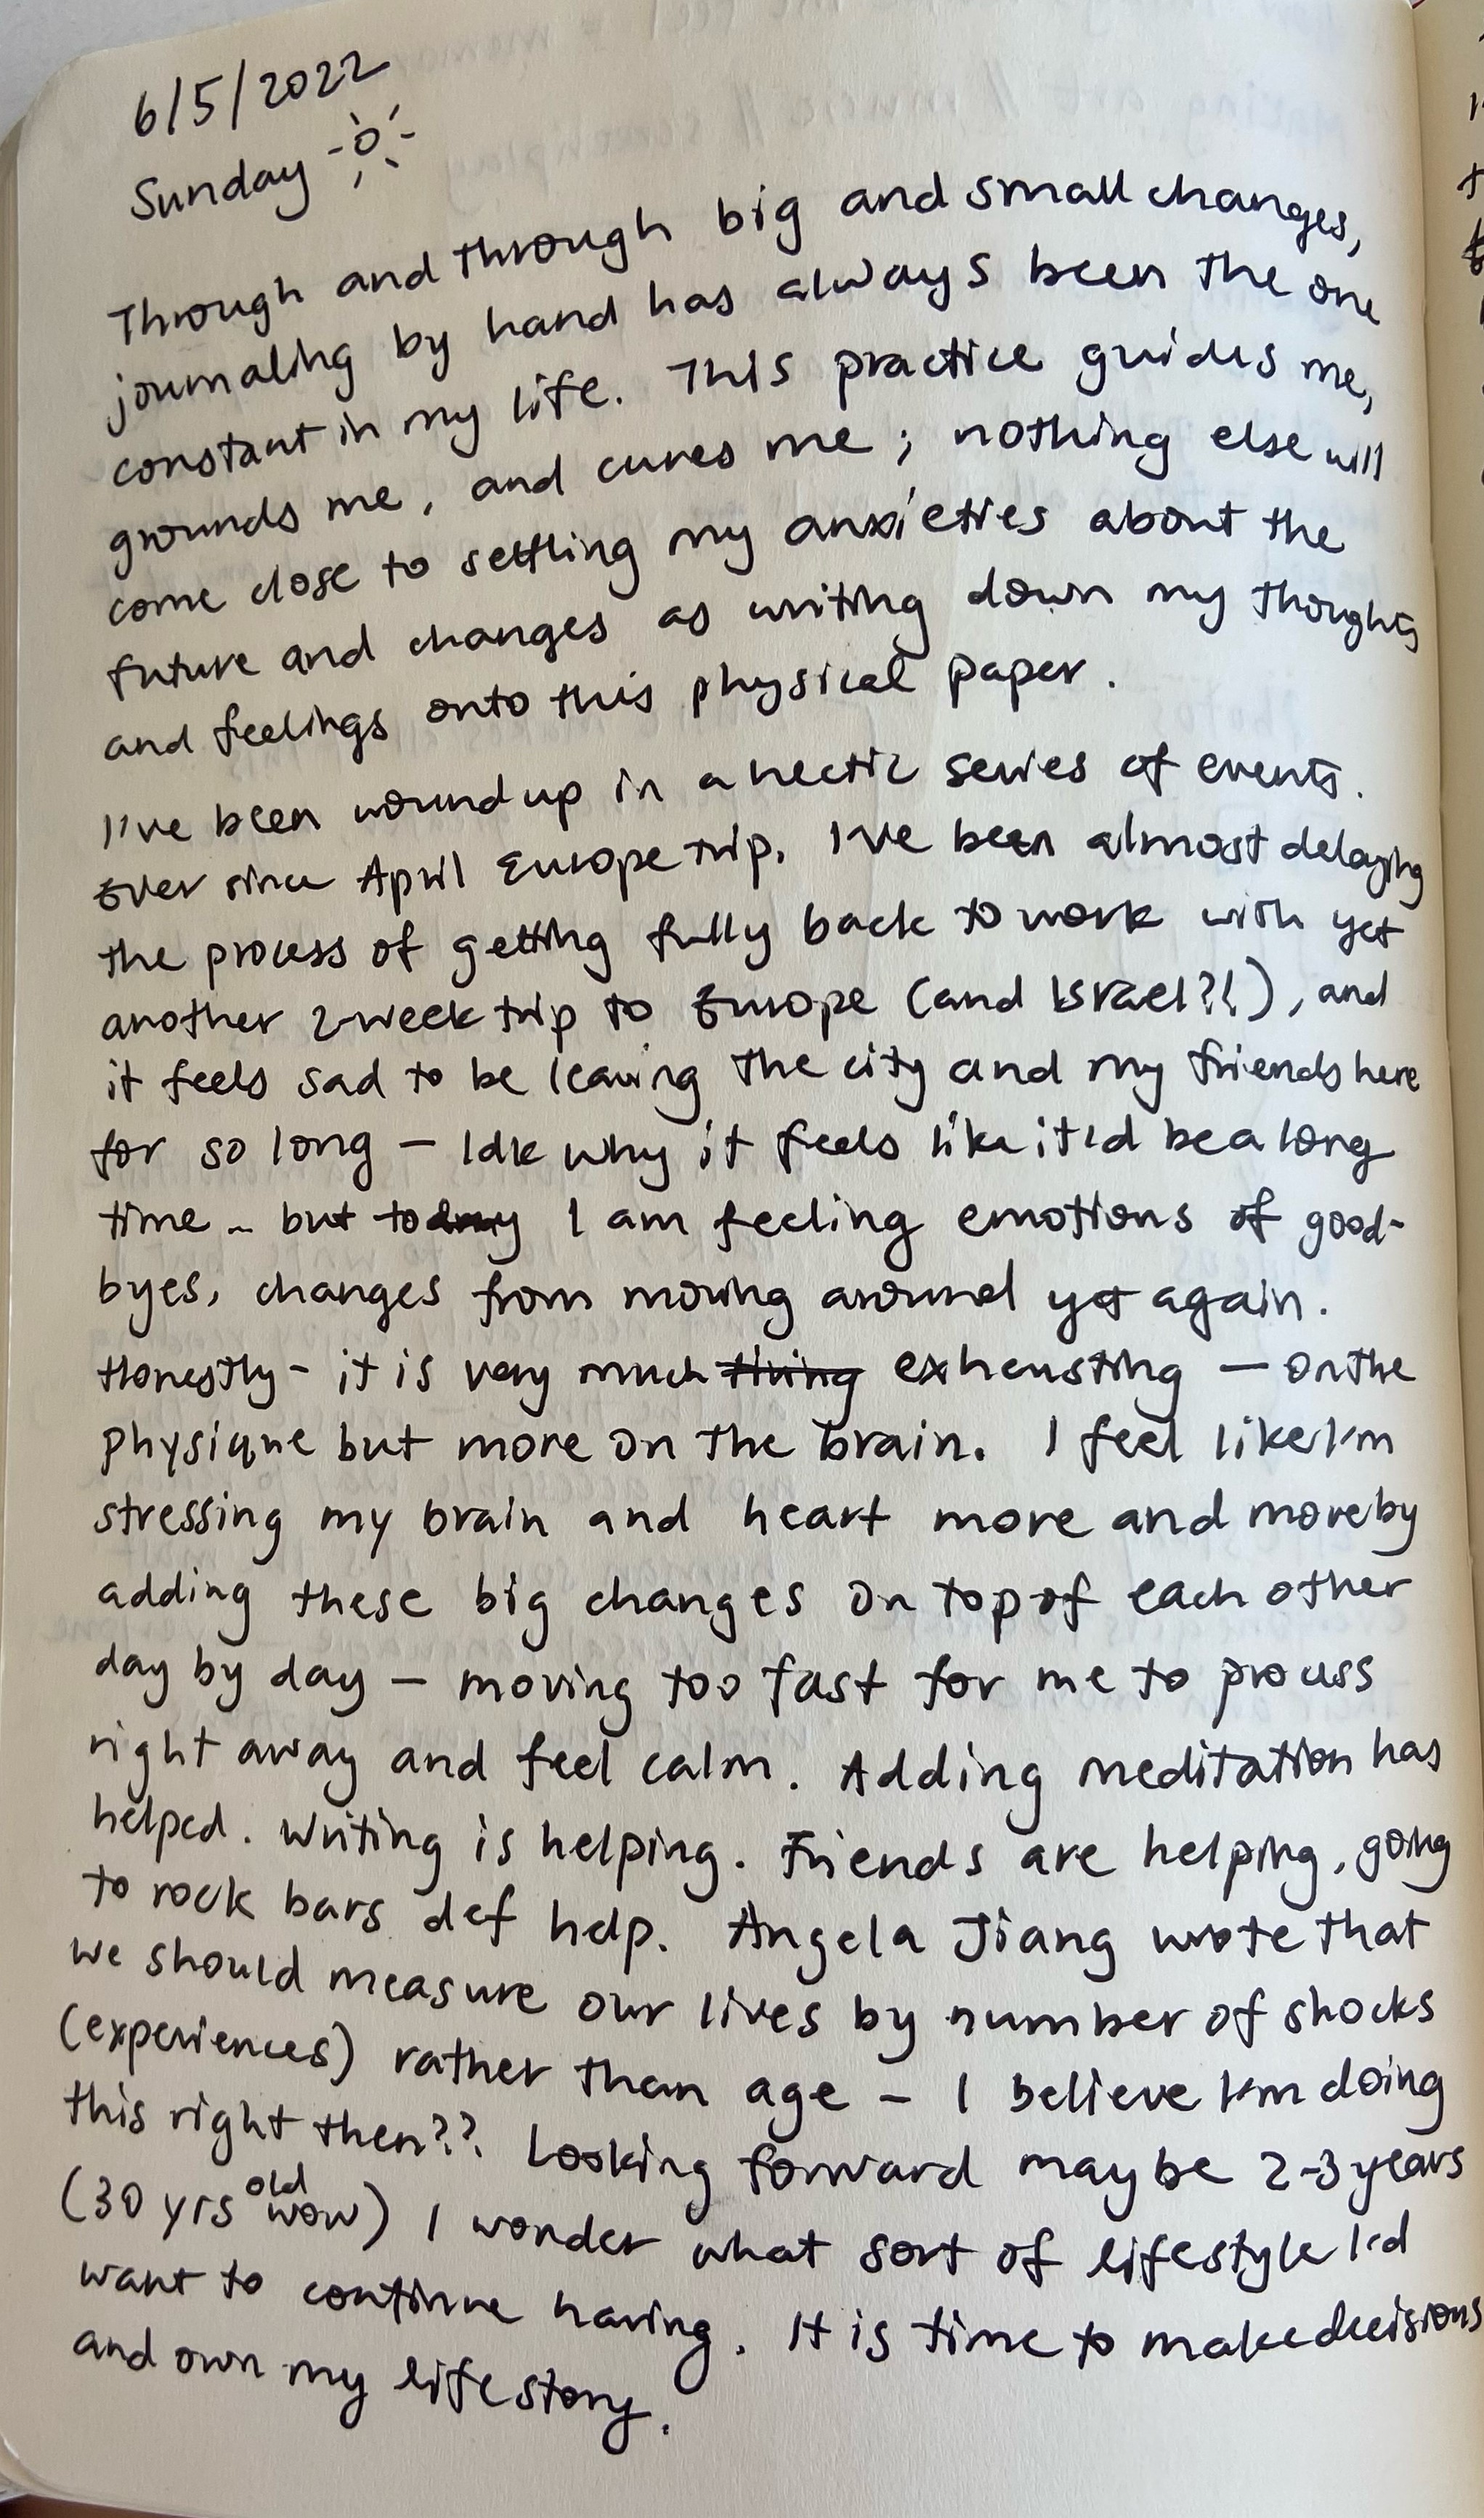 6/5/2022
Sunday
Through and through big and small changes,
journaling by hand has always been the one
constant in my life. This practice guides me,
grounds me, and cures me; nothing else will
come close to settling my anxieties about the
future and changes as writing down my thoughts
and feelings onto this physical paper.
I've been wound up in a hectic series of events.
Ever since April Europe trip, I've been almost delaying
the process of getting fully back to work with yet
another 2-week trip to Europe (and Israel?!), and
it feels sad to be leaving the city and my friends here
for so long - Idk why it feels like it'd be a long
time .. but today I am feeling emotions of good-
byes, changes from moving around yet again.
Honestly - it is very much tiring exhausting — on the
physique but more on the brain. I feel like I'm
stressing my brain and heart more and more by
adding these big changes on top of each other
day by day — moving too fast for me to process
right away and feel calm. Adding meditation has
helped. Writing is helping. Friends are helping, going
to rock bars def help. Angela Jiang wrote that
we should measure our lives by number of shocks
(experiences) rather than age - I believe I'm doing
this right then?? Looking forward maybe 2-3 years
(30 yrs old wow) I wonder what sort of lifestyle I'd
want to continue having. It is time to make decisions
and own my life story.